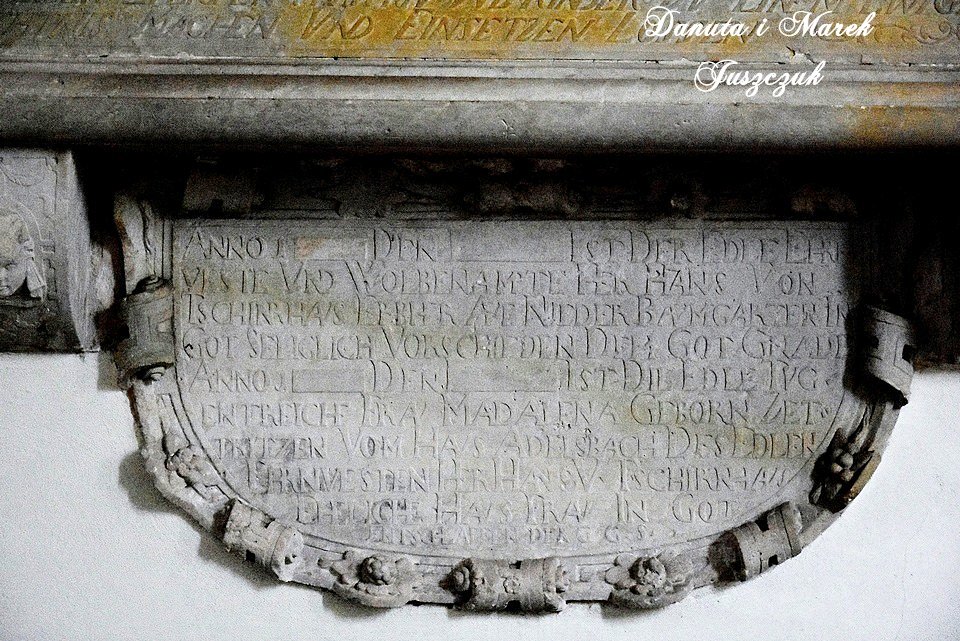 MACHEN VND EINSETZEN
Danuta i Marek
Juszczuk
ANNO 1 DER IST DER EDLE EHRN
VESTE VND WOLBENAMPTE HER HANS VON
TSCHIRNHAVS ERBHER AVF NIEDER BAVMGARTEN IN
GOT SELIGLICH VORSCHIEDEN DEM GOT GNADE
ANNO 1 DEN IST DIE EDLE TVG
ENTREICHE FRAV MADALENA GEBORN ZET
TRITZEN VOM HAVS ADELSBACH DES EDLEN
EHRNVESTEN HER HANS V TSCHIRNHAVS
EHELICHE HAVS FRAV IN GOT
ENTSCHLAFEN DER G G S